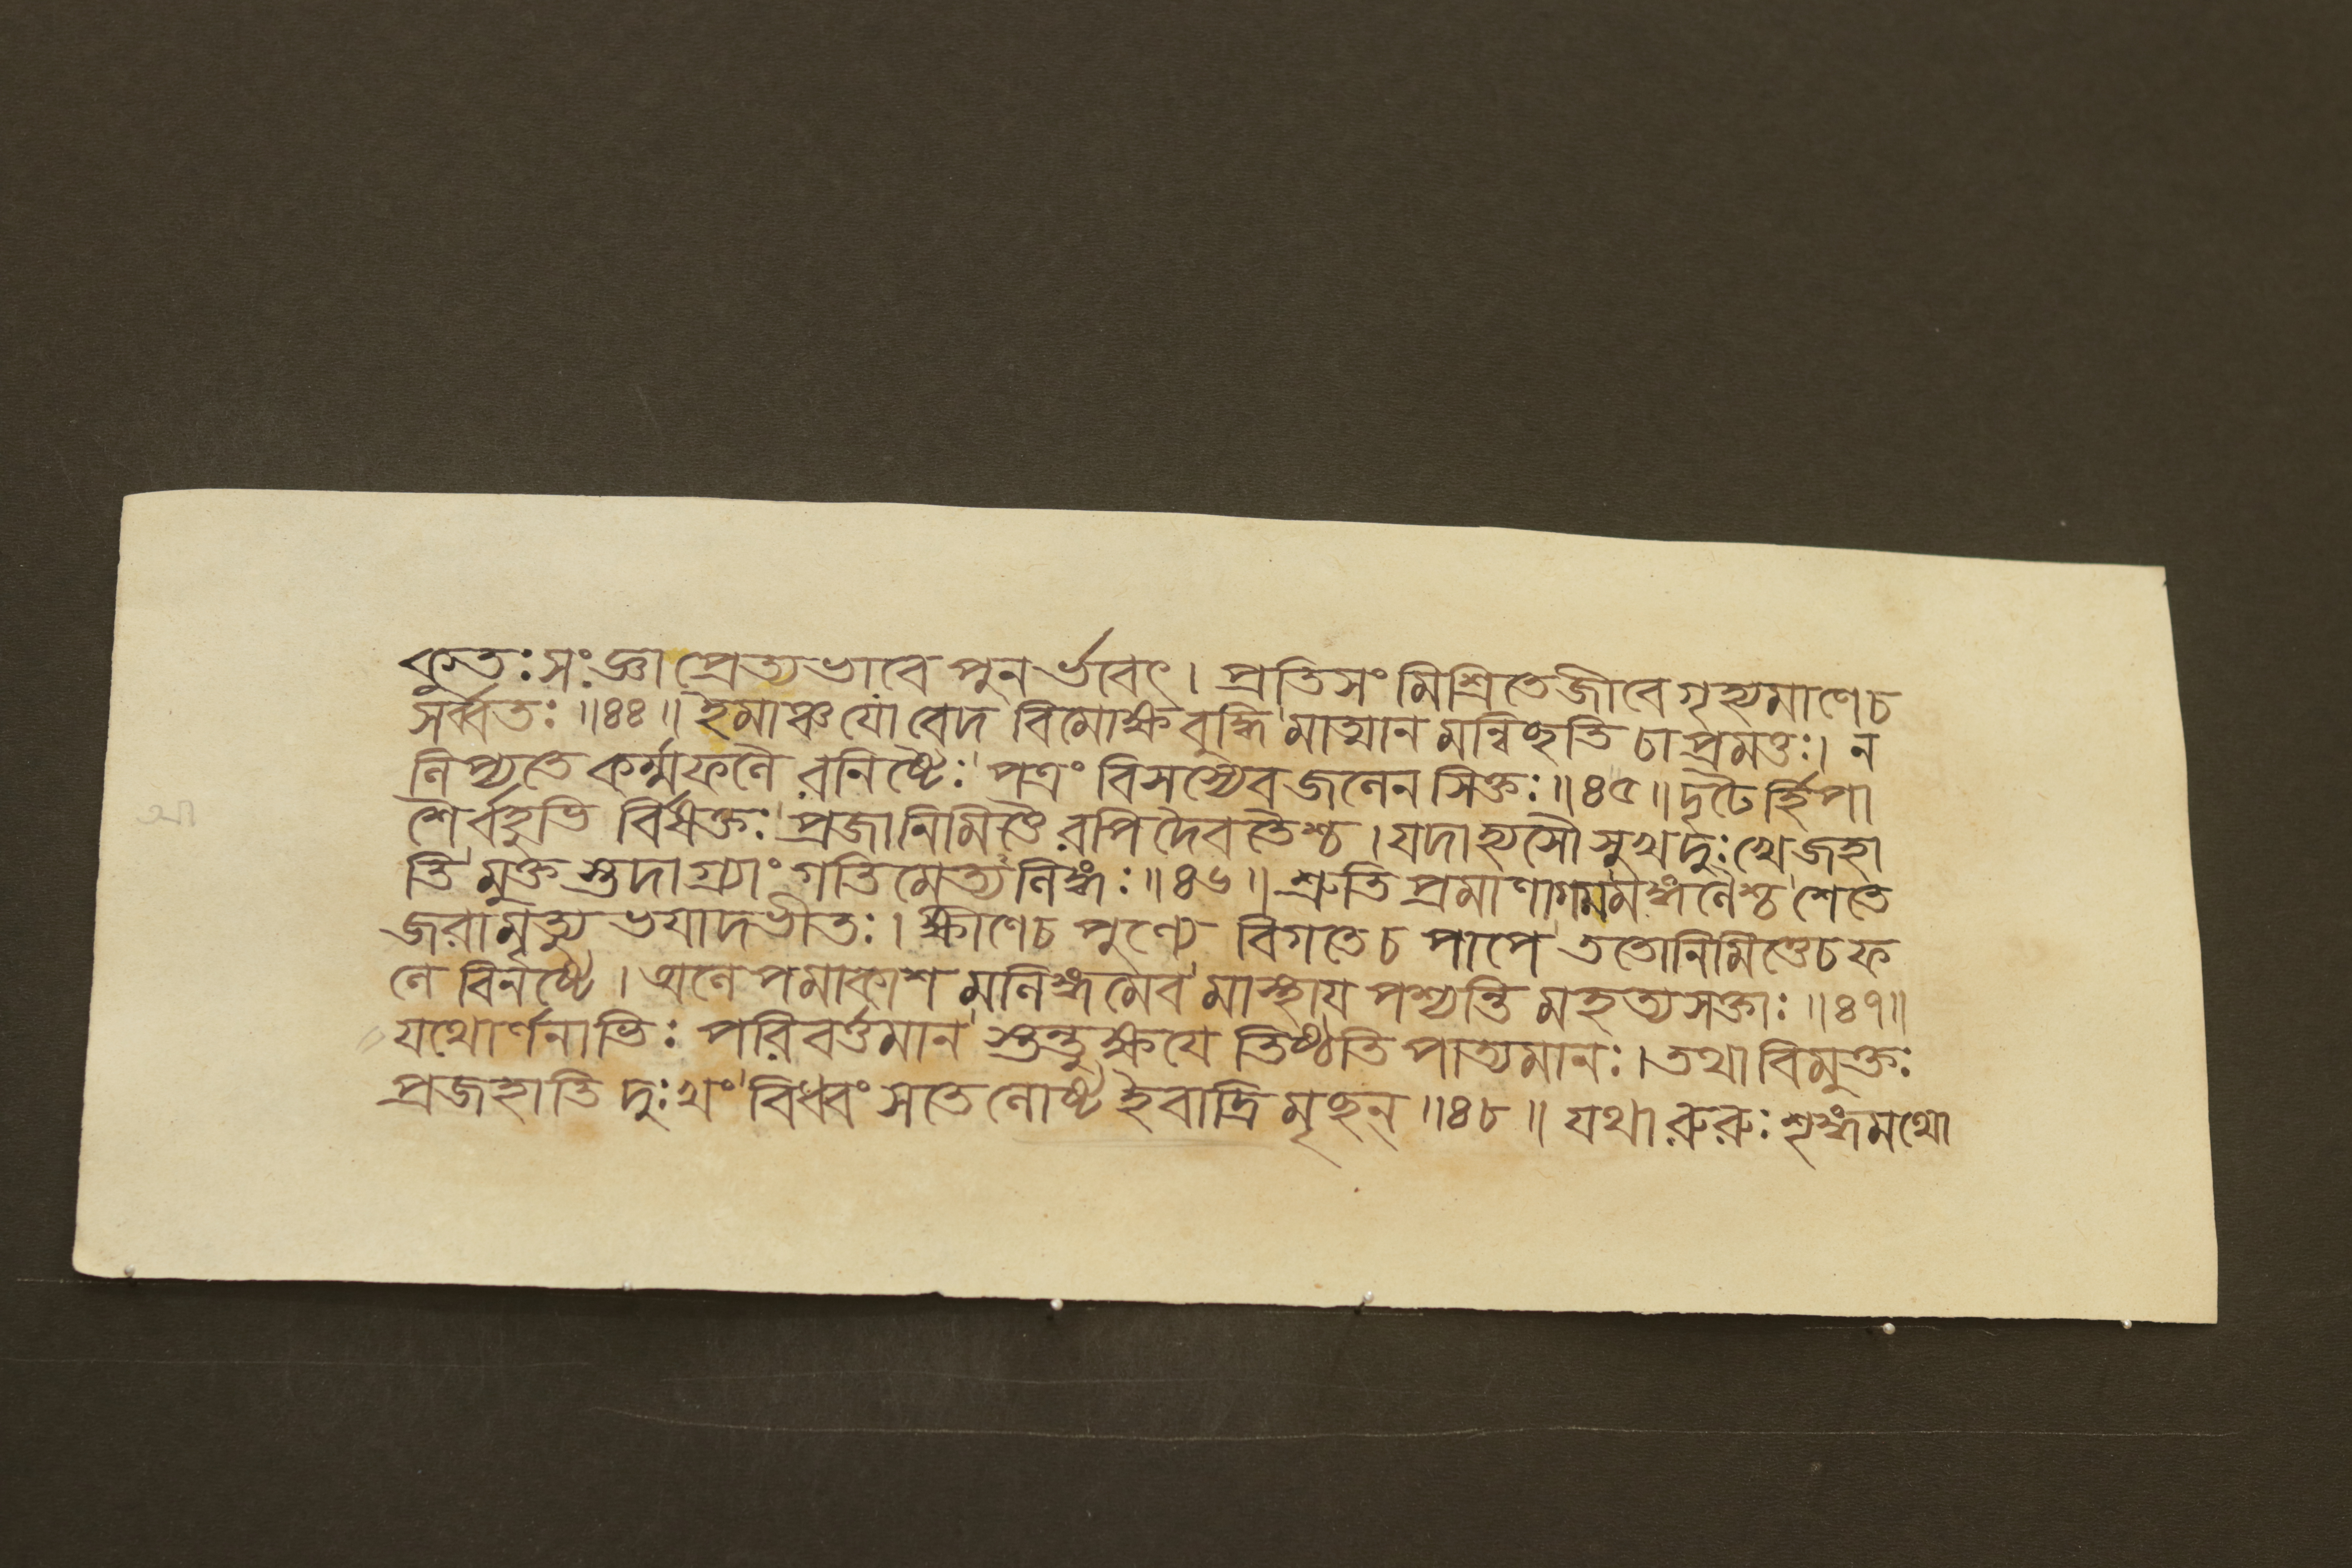 কুতঃ সংজ্ঞা প্রেত্যভাবে পুনর্ভবেৎ। প্রতিসংমিশ্রিতে জীবে গৃহ্যমাণে চ
সর্ব্বতঃ ॥৪৪॥ ইমাঞ্চ যো বেদ বিমোক্ষবুদ্ধি মাত্মান মন্বিচ্ছতি চাপ্রমত্তঃ। ন
লিপ্যতে কর্ম্মফলৈ রনিষ্টৈঃ পত্রং বিসস্যেব জলেন সিক্তঃ ॥৪৫॥ দৃঢৈর্হি পা
শৈর্বহুভি র্বিমুক্তঃ প্রজানিমিত্তৈ রপি দৈবতৈশ্চ। যদা হ্যসৌ সুখদুঃখে জহা
তি মুক্ত স্তদাগ্র্যাং গতিমেত্য লিঙ্গঃ ॥৪৬॥ শ্রুতি প্রমাণাগমমঙ্গলৈশ্চ শেতে
জরামৃত্যু ভযাদভীতঃ। ক্ষীণে চ পুণ্যে বিগতে চ পাপে ততো নিমিত্তে চ ফ
লে বিনষ্টে। অলেপমাকাশ মলিঙ্গমেব মাস্থায পশ্যন্তি মহত্যসক্তাঃ ॥৪৭॥
যথোর্ণনাভিঃ পরিবর্ত্তমান স্তন্তুক্ষযে তিষ্ঠতি পাত্যমানঃ। তথা বিমুক্তঃ
প্রজহাতি দুঃখং বিধ্বংসতে লোষ্ট ইবাদ্রি মৃচ্ছন্ ॥৪৮॥ যথা রুরুঃ শৃঙ্গমথো